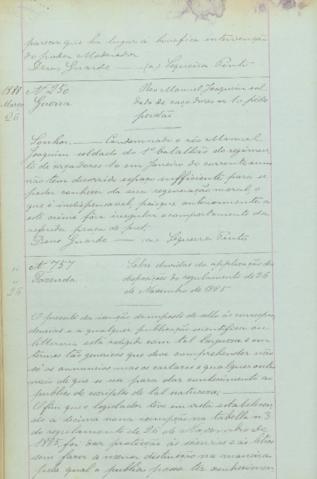 parecer que ha lugar a benefica intervenção
do poder Moderador
Deus Guarde — (a) Sequeira Pinto
1888
Março
26
Nº 250
Guerra
Réo Manuel Joaquim sol
dado de caçadores nº 10 pede
perdão
Senhor — Condemnado o réo Manuel
Joaquim soldado do 1º batalhão do regimen
to de caçadores 10 em Janeiro do corrente anno
não tem decorrido espaço sufficiente para se
poder conhecer da sua regeneração moral, o
que é indispensavel, porque anteriormente a
este crime fôra irregular o comportamento da
referida praça de pret.
Deus Guarde — (a) Sequeira Pinto
"
"
26
Nº 757
Fazenda
Sobre duvidas da applicação das
disposições do regulamento de 26
de Novembro de 1885
O preceito da isenção do imposto do sello ás
e a qualquer publicação scientifica ou
litteraria está redigido com tal largueza e em
termos tão genericos que deve comprehender não
só os annuncios mas os cartazes e quaesquer outros
meios de que se usa para dar conhecimento ao
publico de escriptos de tal natureza;
O fim que o legislador teve em vista estabelecen
do a decima nona isenção na tabella nº 3
do regulamento de 26 de Novembro de
1885, foi dar protecção ás sciencias e ás letras
sem fazer a menor distincção na maneira
pela qual o publico possa ter conhecimen